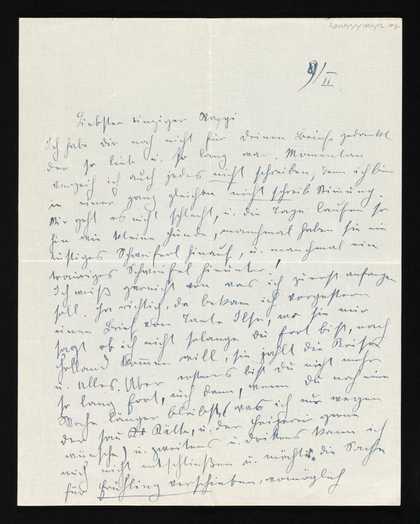 9/II
Liebster einziger Pappi
Ich habe dir noch nicht für deinen Brief gedankt
der so lieb u. so lang war. Momentan
will ich auch jedes nicht schreiben, denn ich bin
in einer ganz gleichen nicht schreib Stimmung.
Mir geht es nicht schlecht, u. die Tage laufen so
hin wie kleine Hunde, manchmal haben sie ein
lustiges Schweiferl hinauf, u. manchmal ein
trauriges Schweiferl hinunter!
Ich weiß garnicht von was ich zuerst anfangen
soll. Ja richtig, da bekam ich vorgestern
einen Brief von Tante Ilse, wo sie mir
sagt ob ich nicht solange du fort bist, nach
Holland kommen will, sie zahlt die Reise
u. Alles. Aber erstens bist du nicht mehr
so lang fort, auch dann, wenn du noch eine
Woche länger bleibst, was ich nur wegen
der Kälte, u. der ganz
wünsche) u. zweitens u. drittens kann ich
mich nicht entschließen u. möchte die Sache
für Frühling verschieben, womöglich